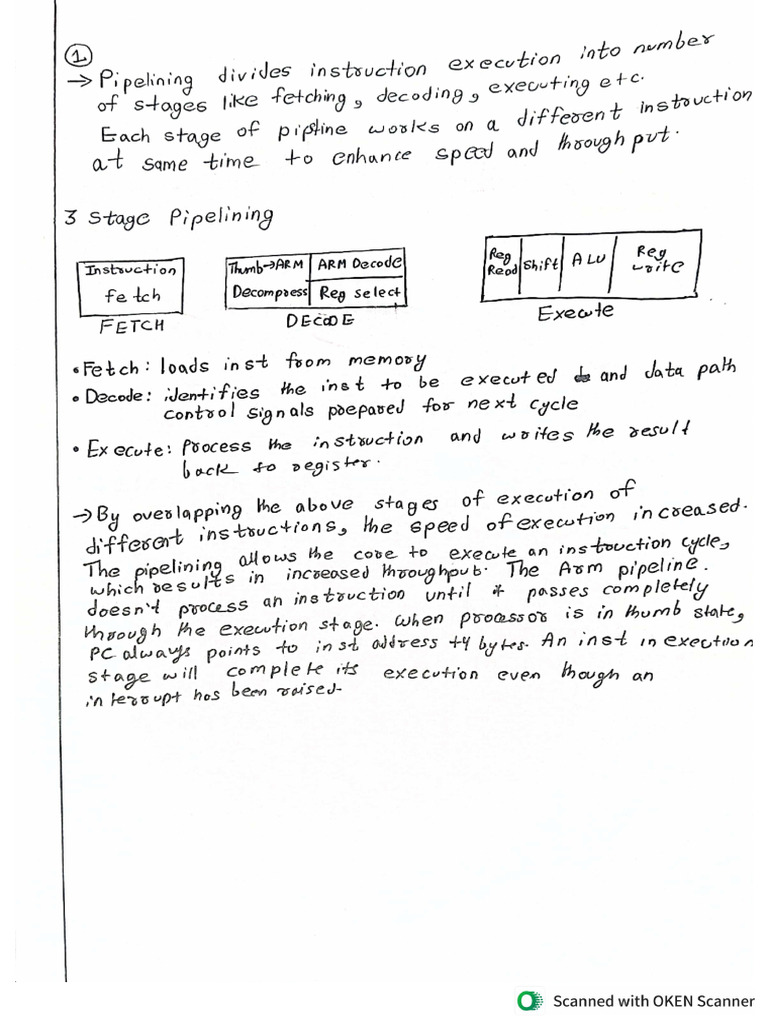 1
→ Pipelining divides instruction execution into number
of stages like fetching, decoding, executing etc.
Each stage of pipline works on a different instruction
at same time to enhance speed and through put.
3 Stage Pipelining
Instruction
fetch
FETCH
Thumb→ARM
Decompress
ARM Decode
Reg select
DECODE
Reg
Read
Shift
ALU
Reg
write
Execute
• Fetch: loads inst from memory
• Decode: identifies the inst to be executed and data path
control signals prepared for next cycle
• Execute: Process the instruction and writes the result
back to register.
→ By overlapping the above stages of execution of
different instructions, the speed of execution increased.
The pipelining allows the core to execute an instruction cycle,
which results in increased throughput. The Arm pipeline.
doesn't process an instruction until it passes completely
through the execution stage. when processor is in thumb state,
PC always points to inst address +4 bytes. An inst in execution
stage will complete its execution even though an
interrupt has been raised.
Scanned with OKEN Scanner